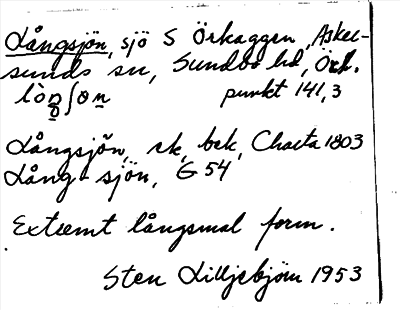 Långsjön, sjö S Örkaggen, Asker-
sunds sn, Sundbo hd, Örk.
lòn̥ʃөn punkt 141,3
Långsjön, ek, bek, Charta 1803
Lång-sjön, G 54
Extremt långsmal form.
Sten Lilljebjörn 1953